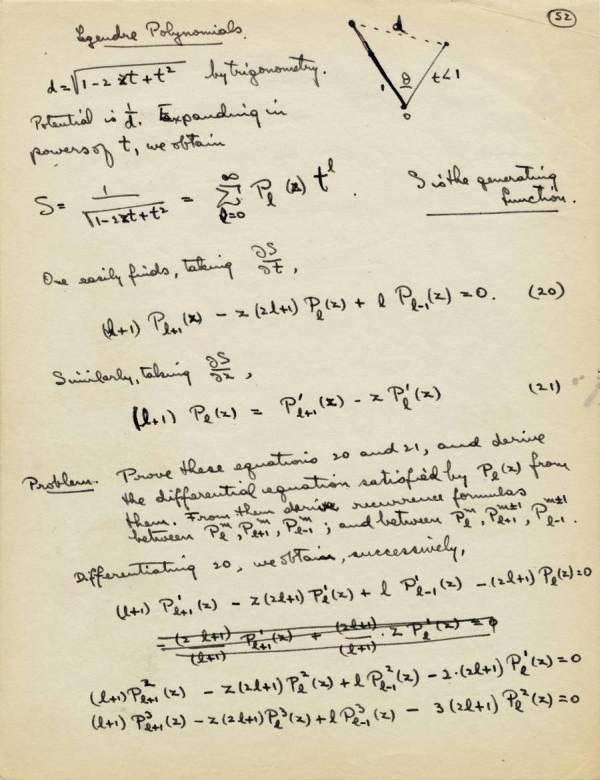 52
Legendre Polynomials.
d
d = √(1-2zt+t²) by trigonometry.
θ
1
t<1
0
Potential is 1/d. Expanding in
powers of t, we obtain
S = 1/√(1-2zt+t²) = ∑_{l=0}^{∞} P_l(z) t^l . S is the generating
function.
One easily finds, taking ∂S/∂t,
(l+1) P_{l+1}(z) - z(2l+1) P_l(z) + l P_{l-1}(z) = 0. (20)
Similarly, taking ∂S/∂z,
(l+1) P_l(z) = P'_{l+1}(z) - z P'_l(z) (21)
Problem. Prove these equations 20 and 21, and derive
the differential equation satisfied by P_l(z) from
them. From them derive recurrence formulas
between P_l^m, P_{l+1}^m, P_{l-1}^m ; and between P_l^m, P_{l+1}^{m±1}, P_{l-1}^{m±1}.
Differentiating 20, we obtain, successively,
(l+1) P'_{l+1}(z) - z(2l+1) P'_l(z) + l P'_{l-1}(z) - (2l+1) P_l(z) = 0
(l+1) P²_{l+1}(z) - z(2l+1) P²_l(z) + l P²_{l-1}(z) - 2·(2l+1) P'_l(z) = 0
(l+1) P³_{l+1}(z) - z(2l+1) P³_l(z) + l P³_{l-1}(z) - 3(2l+1) P²_l(z) = 0